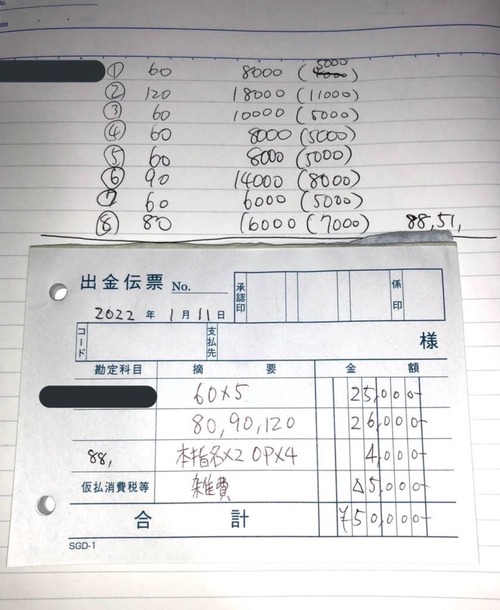 ① 60 8000 (5000
② 120 18000 (11000)
③ 60 10000 (5000)
④ 60 8000 (5000)
⑤ 60 8000 (5000)
⑥ 90 14000 (8000)
⑦ 60 6000 (5000)
⑧ 80 16000 (7000) 88,51,
出金伝票 No.
承認印 係印
2022 年 1 月 11 日
コード 支払先 様
勘定科目 摘要 金額
60×5 25,000-
80,90,120 26,000-
88, 本指名×2 OP×4 4,000-
仮払消費税等 雑費 △5,000-
合計 ¥50,000-
SGD-1